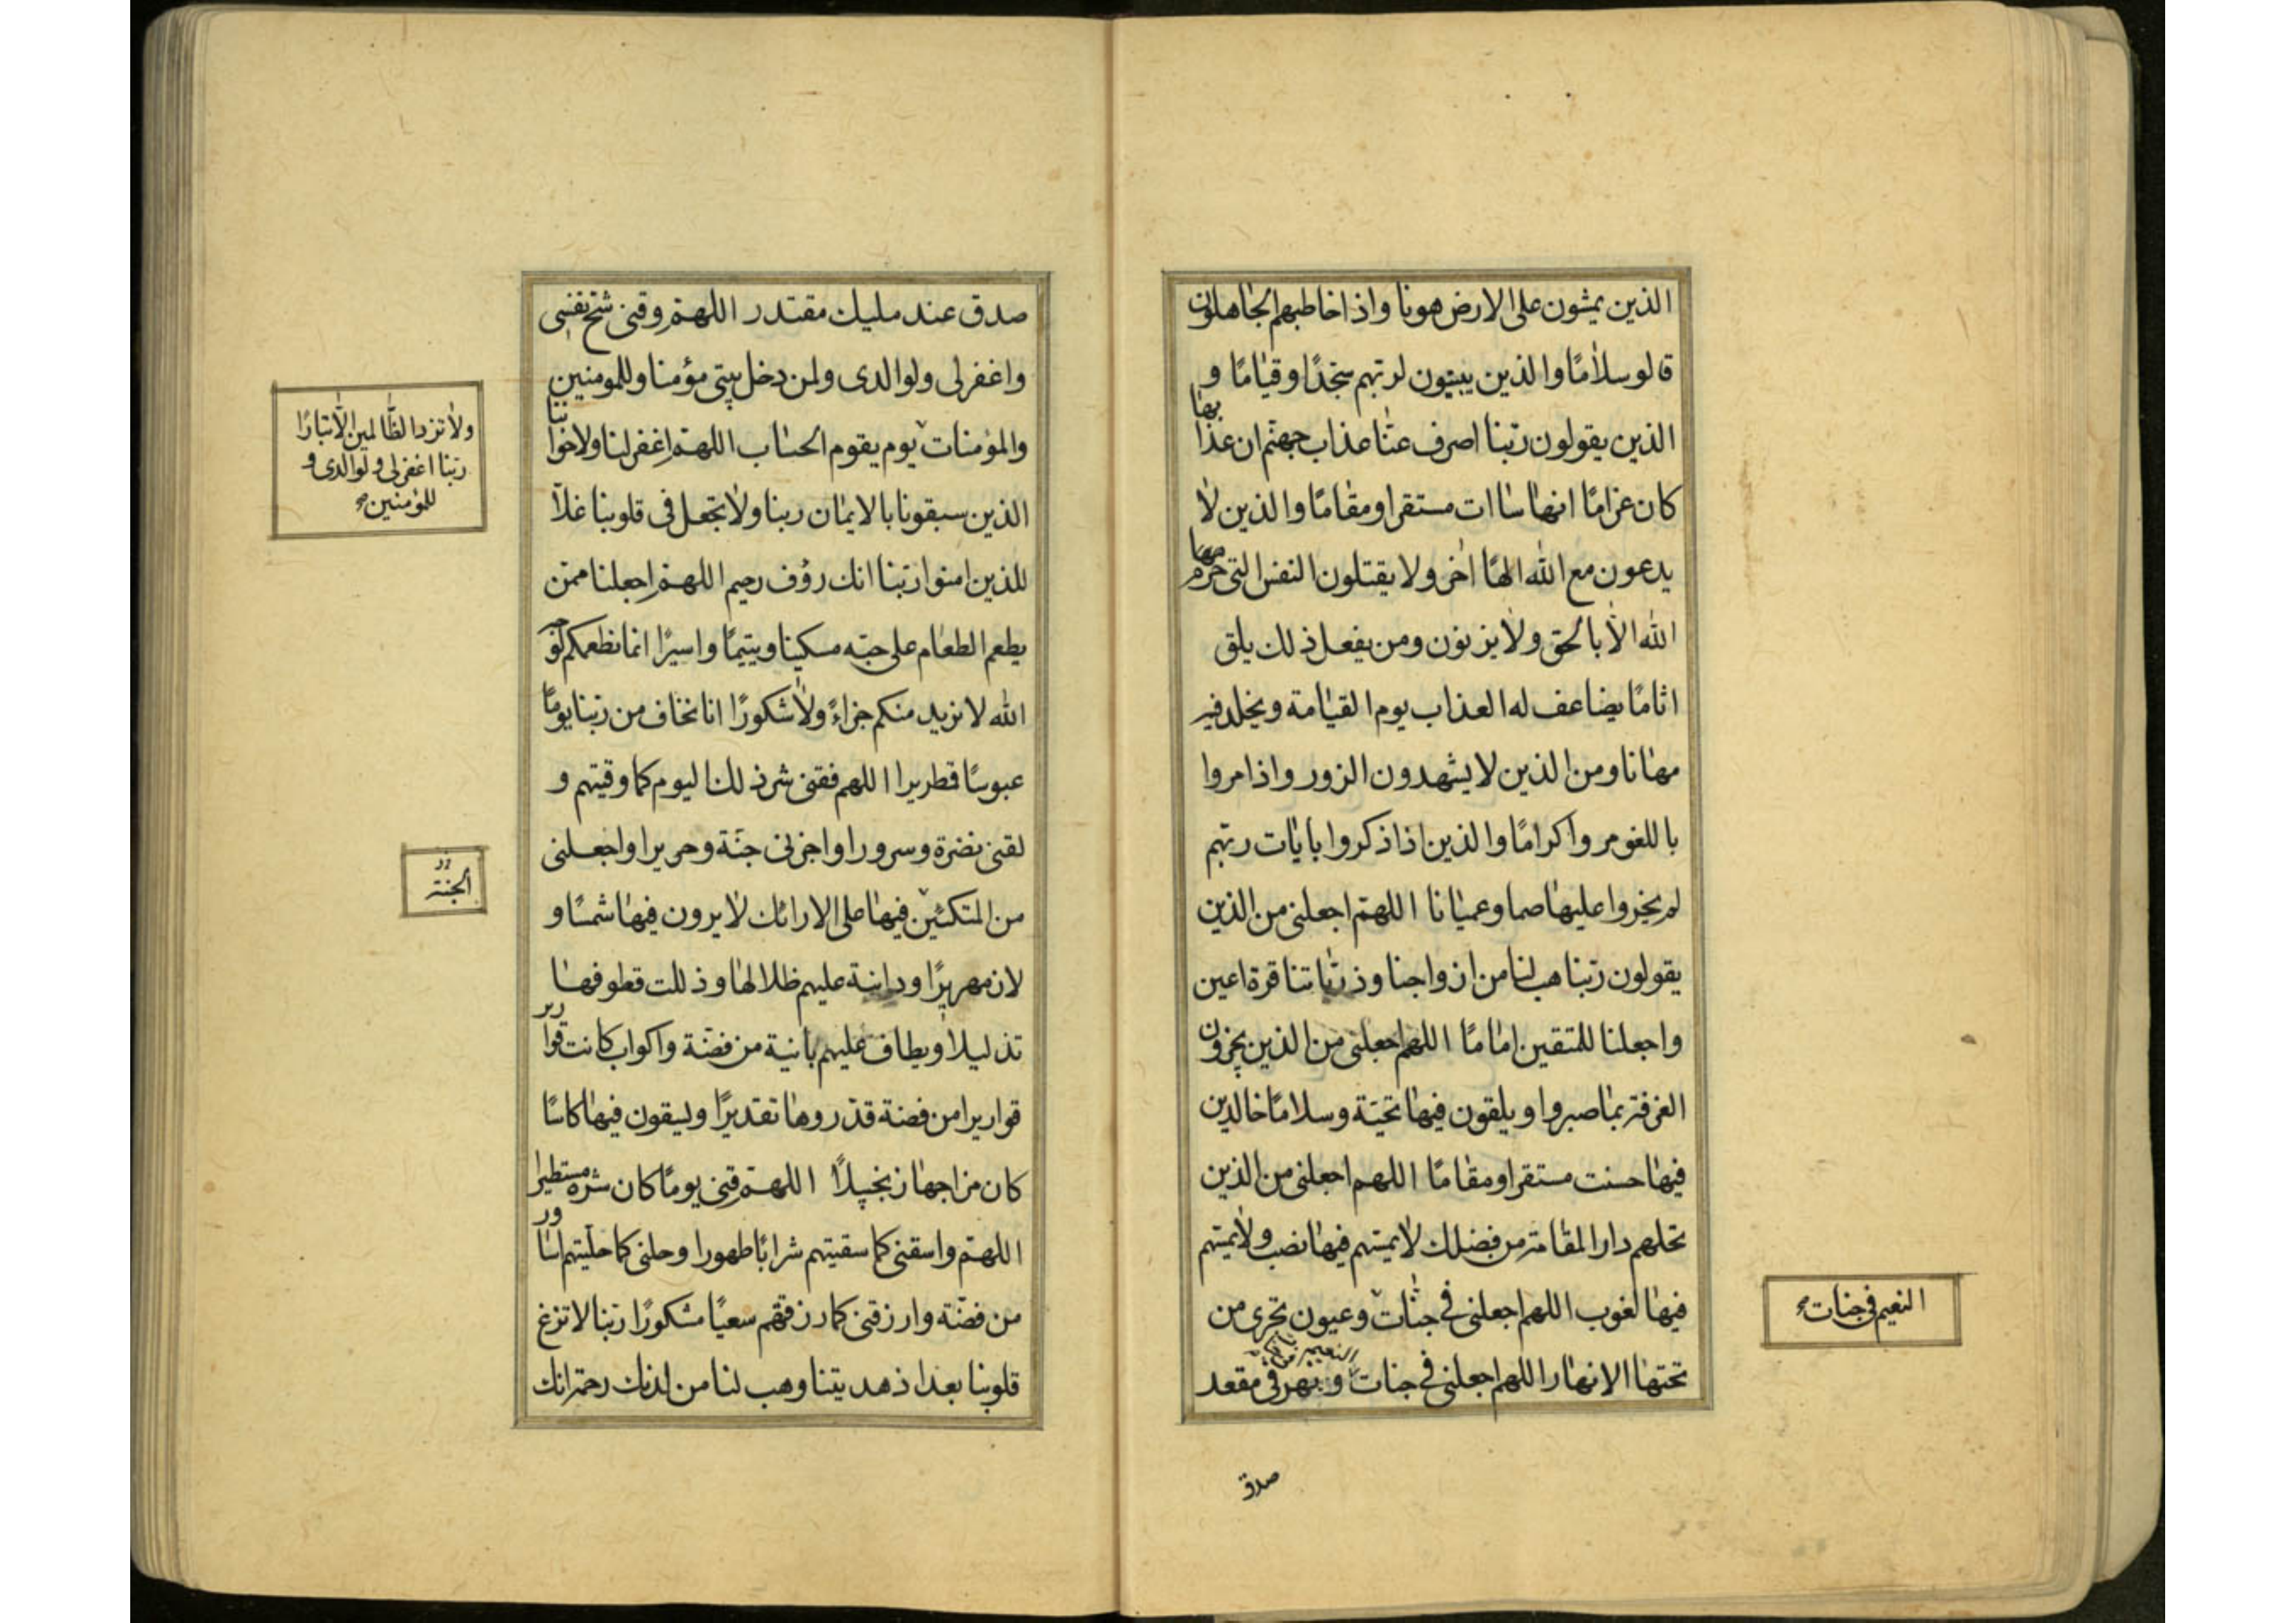 الذين يمشون على الارض هونا واذا خاطبهم الجاهلون
قالو سلامًا والذين يبيتون لربهم سجّدًا وقيامًا و
الذين يقولون ربّنا اصرف عنّا عذاب جهنّم ان عذابها
كان غرامًا انها ساات مستقرا ومقامًا والذين لا
يدعون مع الله الهًا اخر ولا يقتلون النفس التى حرمها
الله الّا بالحق ولا يزنون ومن يفعل ذلك يلق
اثامًا يضاعف له العذاب يوم القيامة ويخلد فيه
مهانا ومن الذين لا يشهدون الزور واذا مروا
باللغو مروا كرامًا والذين اذا ذكروا بايات ربّهم
لم يخروا عليها صما وعميانا اللهمّ اجعلنى من الذين
يقولون ربّنا هب لنا من ازواجنا وذريّاتنا قرة اعين
واجعلنا للمتقين امامًا اللهم اجعلنى من الذين يجزون
الغرفة بما صبروا ويلقون فيها تحيّة وسلامًا خالدين
فيها حسنت مستقرا ومقامًا اللهم اجعلنى من الذين
تحلهم دار المقامة من فضلك لا يمسّهم فيها نصب ولا يمسّهم
فيها لغوب اللهم اجعلنى فى جنّات وعيون تجرى من
تحتها الانهار اللهم اجعلنى فى جنات ونهر فى مقعد
النعيم فى جنات صح
صدق
صدق عند مليك مقتدر اللهمّ وقنى شحّ نفسى
واغفرلى ولوالدى ولمن دخل بيتى مؤمنا وللمومنين
والمؤمنات يوم يقوم الحساب اللهمّ اغفر لنا ولاخواننا
الذين سبقونا بالايمان ربنا ولا تجعل فى قلوبنا غلّا
للذين امنوا ربّنا انك رؤف رحيم اللهمّ اجعلنا ممّن
يطعم الطعام على حبّه مسكينا ويتيمًا واسيرًا انما نطعمكم لوجه
الله لا نريد منكم جزاءً ولا شكورًا انا نخاف من ربّنا يومًا
عبوسًا قطريرا اللهم فقنى شر ذلك اليوم كما وقيتهم و
لقنى نضرة وسرورا واجزنى جنّة وحريرا واجعلنى
من المتكئين فيها على الارائك لا يرون فيها شمسًا و
لا زمهريرًا ودانية عليهم ظلالها وذللت قطوفها
تذليلا ويطاف عليهم بانية من فضّة واكواب كانت قوارير
قواريرا من فضة قدّروها تقديرًا ويسقون فيها كاسًا
كان مزاجها زنجبيلًا اللهمّ قنى يومًا كان شره مستطيرا
اللهمّ واسقنى كما سقيتهم شرابًا طهورا وحلنى كما حلّيتهم اساور
من فضّة وارزقنى كما رزقتهم سعيًا مشكورًا ربّنا لا تزغ
قلوبنا بعد اذ هديتنا وهب لنا من لدنك رحمة انك
ولا تزد الظّالمين الّا تبارًا
ربّنا اغفرلى ولوالدى و
للمؤمنين صح
الجنة